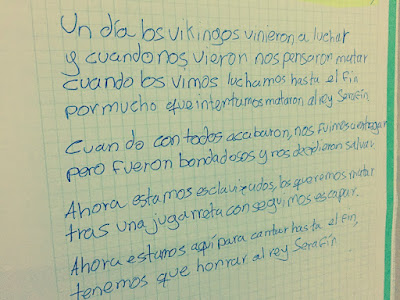 Un día los vikingos vinieron a luchar
y cuando nos vieron nos pensaron matar
cuando los vimos luchamos hasta el fin
por mucho que intentamos mataron al rey Serafín
Cuando con todos acabaron, nos fuimos a entregar
pero fueron bondadosos y nos decidieron salvar.
Ahora estamos esclavizados, los queremos matar
tras una jugarreta conseguimos escapar.
Ahora estamos aquí para cantar hasta el fin,
tenemos que honrar al rey Serafín.